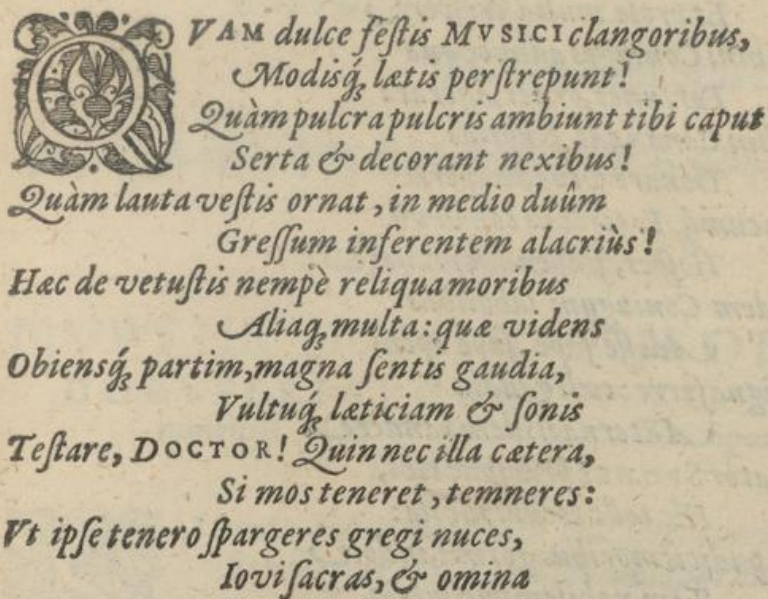 QVAM dulce feſtis MVSICI clangoribus,
Modisq́; lætis perſtrepunt!
Quàm pulcra pulcris ambiunt tibi caput
Serta & decorant nexibus!
Quàm lauta veſtis ornat, in medio duûm
Greſſum inferentem alacriùs!
Hæc de vetuſtis nempè reliqua moribus
Aliaq; multa: quæ videns
Obiensq́; partim, magna ſentis gaudia,
Vultuq́; læticiam & ſonis
Teſtare, DOCTOR! Quin nec illa cætera,
Si mos teneret, temneres:
Vt ipſe tenero ſpargeres gregi nuces,
Iovi ſacras, & omina